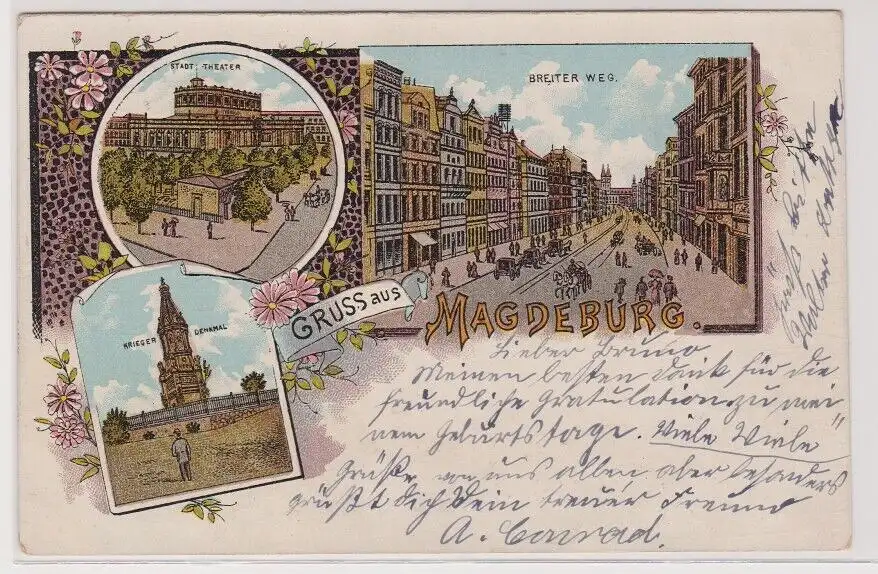 STADT-THEATER
BREITER WEG.
KRIEGER DENKMAL
GRUSS aus
MAGDEBURG.
Lieber Bruno
Meinen besten Dank für die
freundliche Gratulation zu mei
nem Geburtstage. Viele Viele
Grüße von uns allen aber besonders
grüßt Dich Dein treuer Freund
A. Conrad.